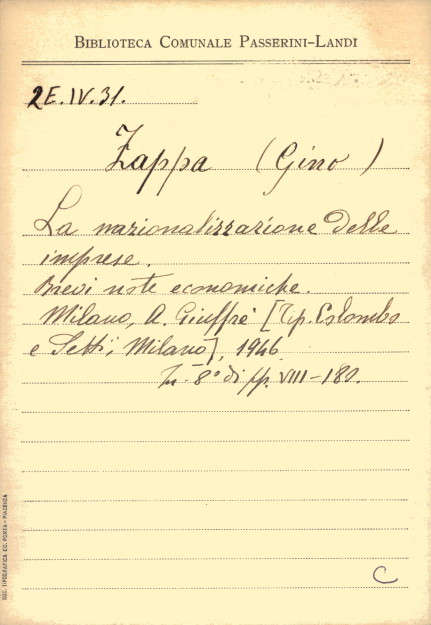 BIBLIOTECA COMUNALE PASSERINI-LANDI
2E.IV.31.
Zappa (Gino)
La nazionalizzazione delle
imprese.
Brevi note economiche.
Milano, A. Giuffrè [Tip. Colombo
e Setti, Milano], 1946.
In-8° di pp. VIII-180.
C
SOC. TIPOGRAFICA ED. PORTA - PIACENZA